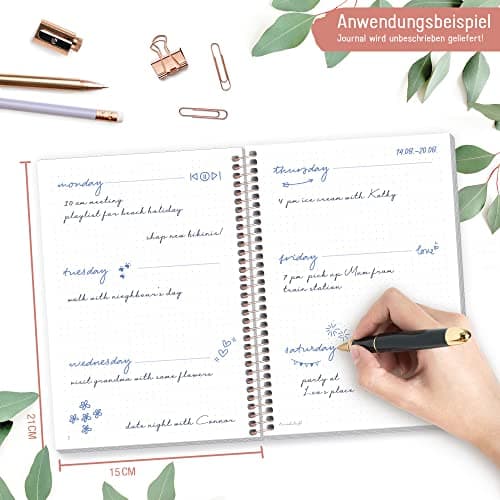 Anwendungsbeispiel
Journal wird unbeschrieben geliefert!
monday
10 am meeting
playlist for beach holiday
shop new bikinis!
tuesday
walk with nieghbour's dog
wednesday
visit grandma with some flowers
date night with Connor
14.08.-20.08.
thursday
4 pm ice cream with Kathy
friday
love
7 pm pick up Mum from
train station
saturday
party at
Lea's place
21CM
15CM